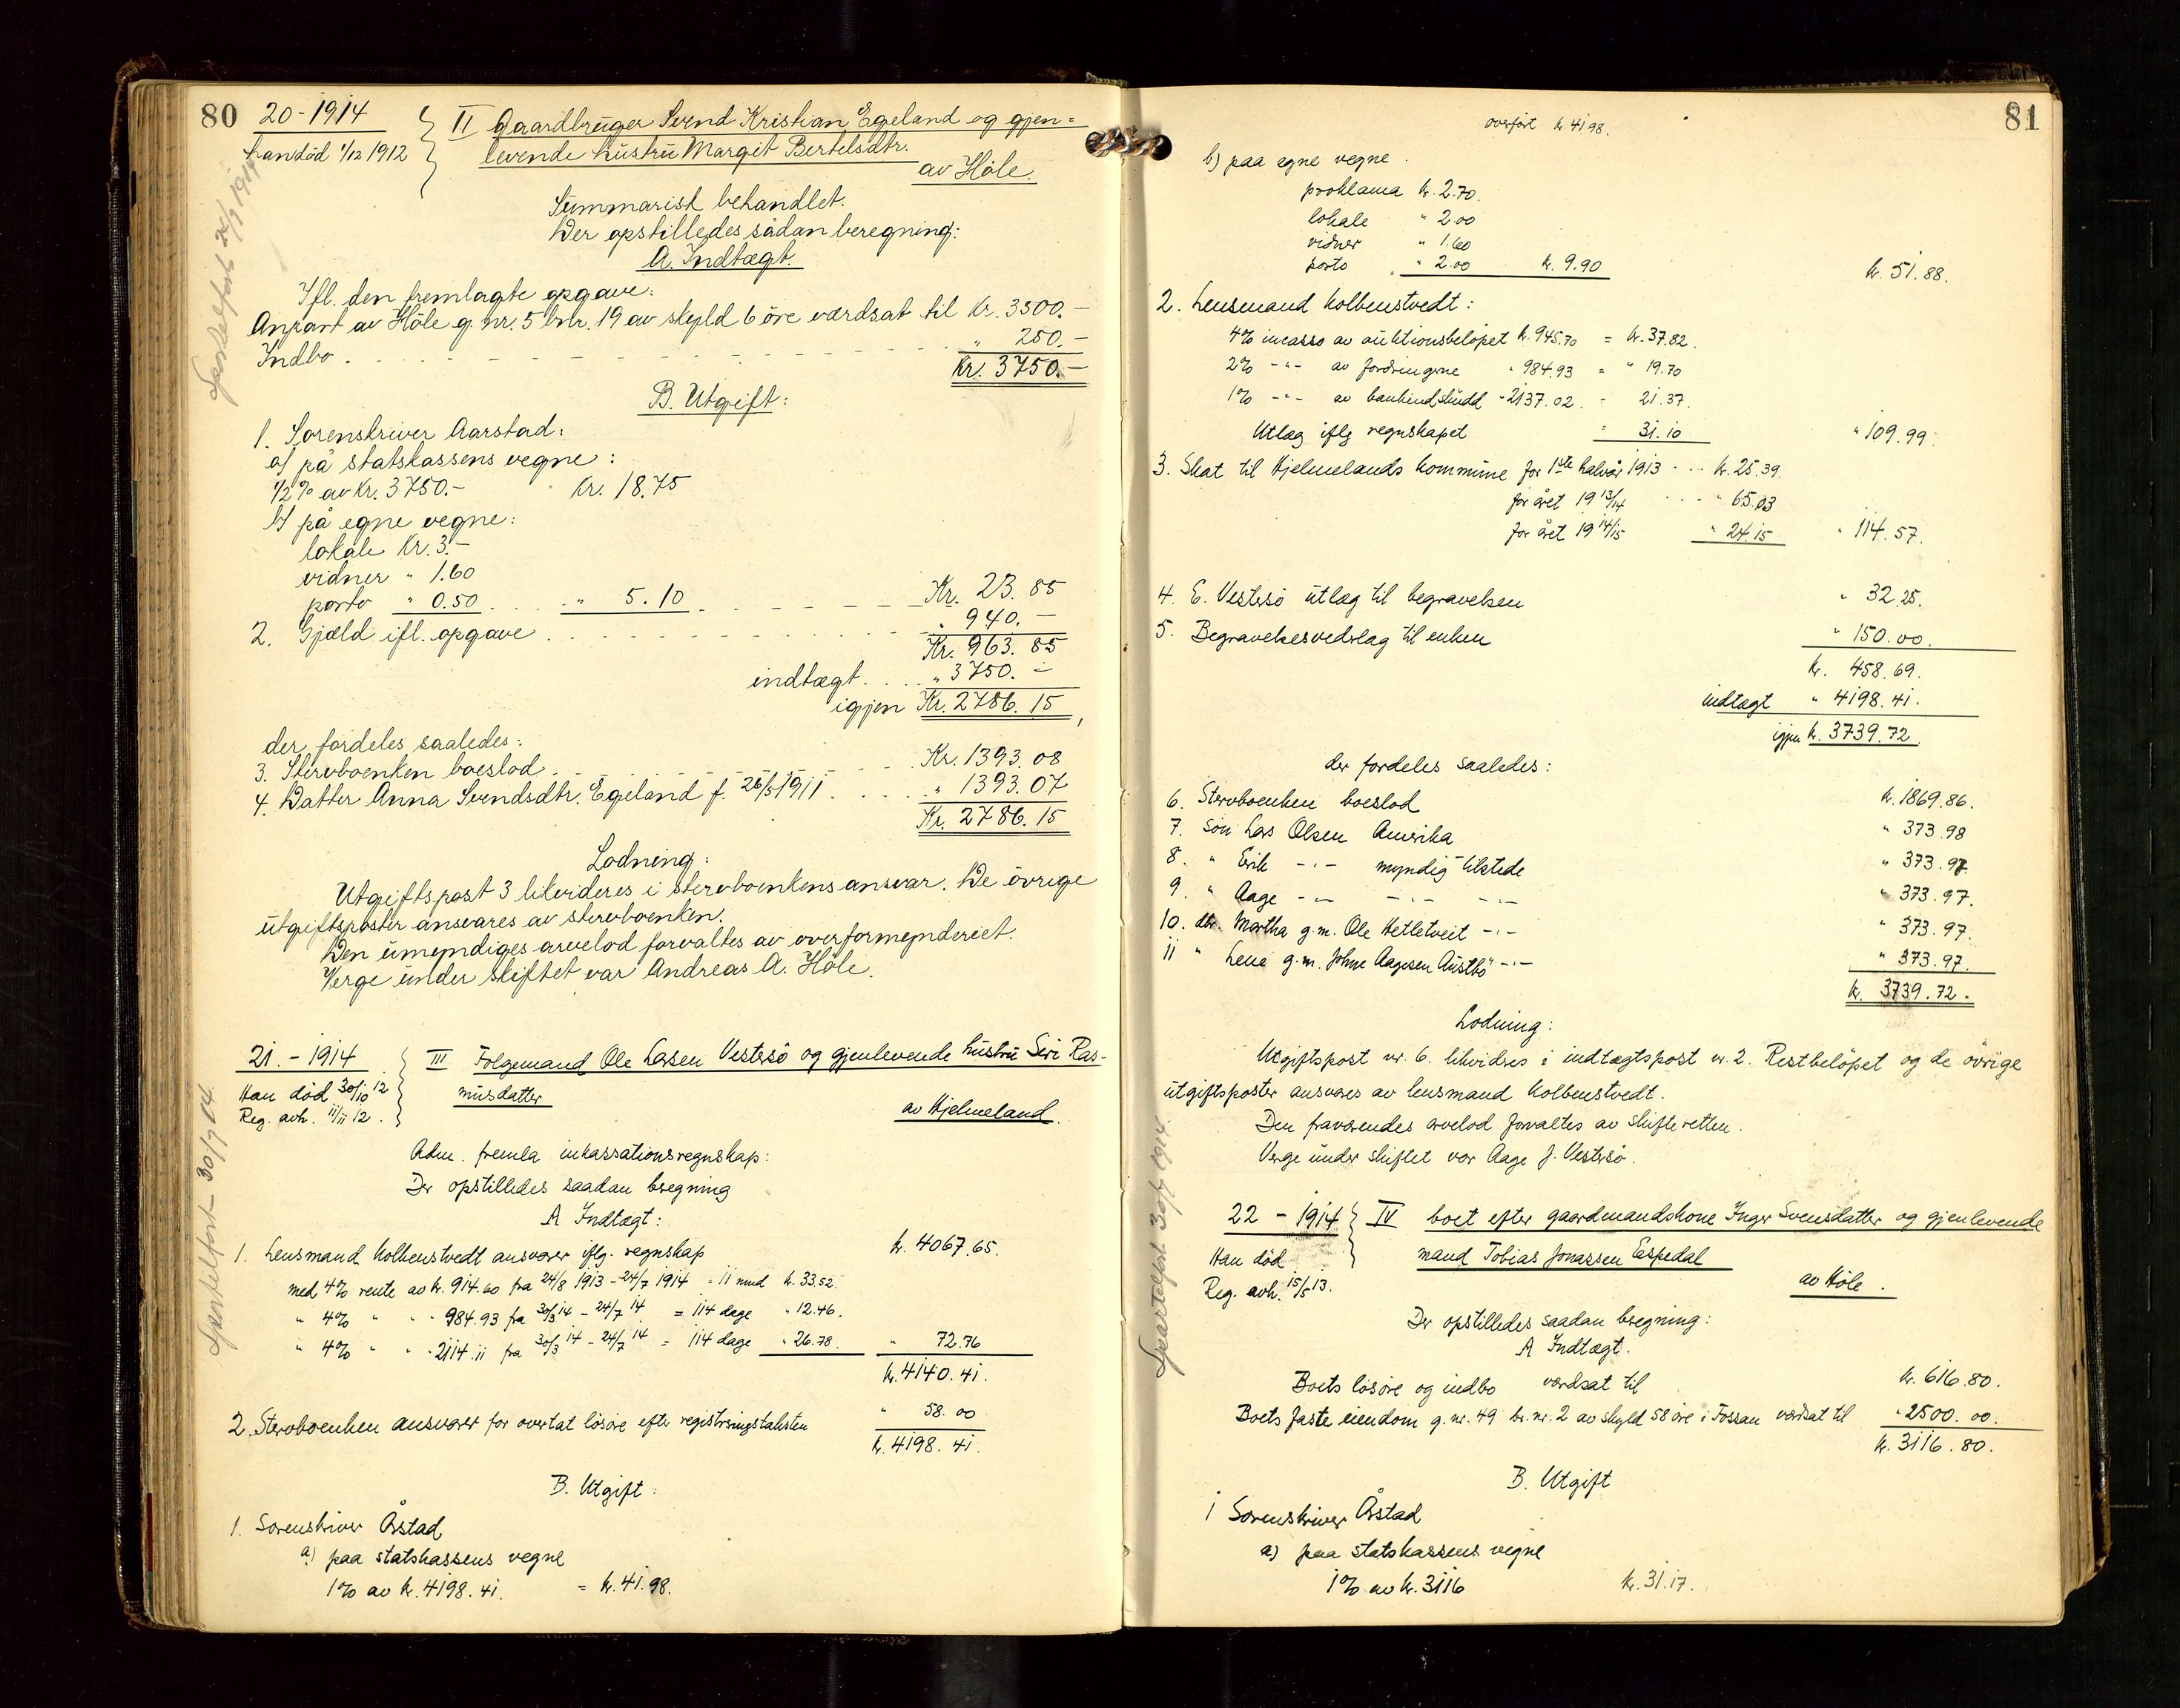 80
20-1914
han død 1/12 1912
II Gaardbruger Svend Kristian Egeland og gjen=
levende hustru Margit Bertelsdtr.
av Höle.
Summarisk behandlet.
Der opstilledes sådan beregning:
A. Indtægt.
Ifl. den fremlagte opgave:
Anpart av Höle g.nr. 5 bnr. 19 av skyld 6 öre værdsat til Kr. 3500.-
Indbo . . . " 250.-
Kr. 3750.-
B. Utgift:
1. Sorenskriver Aarstad:
a/ på statskassens vegne:
1/2% av Kr. 3750.- Kr. 18.75
b/ på egne vegne:
lokale Kr. 3.-
vidner " 1.60
porto " 0.50 . . . " 5.10 . . . Kr. 23.85
2. Gjæld ifl. opgave . . . " 940.-
Kr. 963.85
indtægt . . . " 3750.-
igjen Kr. 2786.15,
der fordeles saaledes:
3. Stervboenken boeslod . . . Kr. 1393.08
4. Datter Anna Svendsdtr. Egeland f. 26/5 1911 . . . " 1393.07
Kr. 2786.15
Lodning:
Utgiftspost 3 likvideres i stervboenkens ansvar. De övrige
utgiftsposter ansvares av stervboenken.
Den umyndiges arvelod forvaltes av overformynderiet.
Verge under skiftet var Andreas A. Höle.
21.-1914
Han död 30/10 12
Reg. avh. 11/11 12.
III Folgemand Ole Larsen Vestersö og gjenlevende hustru Siri Ras-
musdatter
av Hjelmeland.
Adm. fremla inkassationsregnskap:
Der opstilledes saadan beregning
A Indtægt:
1. Lensmand Kolbenstvedt ansvarer iflg. regnskap kr. 4067.65.
med 4% rente av kr. 914.60 fra 24/8 1913 - 24/7 1914 = 11 mnd kr. 33.52.
" 4% " " " 984.93 fra 30/3 14 - 24/7 14 = 114 dage " 12.46.
" 4% " " " 2114.11 fra 30/3 14 - 24/7 14 = 114 dage " 26.78. " 72.76
kr. 4140.41.
2. Stervboenken ansvarer for overtat lösöre efter registreringstaksten " 58.00
kr. 4198.41.
B. Utgift:
1. Sorenskriver Årstad
a) paa statskassens vegne
1% av kr. 4198.41. = kr. 41.98.
81
overfört kr 41 98.
b) paa egne vegne.
proklama kr. 2.70.
lokale " 2.00
vidner " 1.60
porto " 2.00 kr. 9.90 kr. 51.88.
2. Lensmand Kolbenstvedt:
4% incasso av auktionsbelöpet kr. 945.70 = kr. 37.82.
2% -"- av fordringene " 984.93 = " 19.70
1% -"- av bankindskudd " 2137.02. = 21.37.
Utlæg iflg regnskapet " 31.10 " 109.99.
3. Skat til Hjelmelands kommune for 1ste halvår 1913 . . . kr. 25.39.
for året 1913/14 . . . " 65.03
for året 1914/15 " 24.15 " 114.57.
4. E. Vestersö utlæg til begravelsen " 32.25.
5. Begravelsesvederlag til enken " 150.00.
kr. 458.69.
indtægt " 4198.41.
igjen kr. 3739.72.
der fordeles saaledes:
6. Stervboenken boeslod kr. 1869.86.
7. sön Lars Olsen Amerika " 373.98
8. " Erik -"- myndig tilstede " 373.97.
9. " Aage -"- -"- -"- " 373.97.
10. dtr. Martha g.m. Ole Hetletveit -"- " 373.97.
11 " Lene g.m. Johne Aagesen Austbö -"- " 373.97.
kr. 3739.72.
Lodning:
Utgiftspost nr. 6. likvidres i indtægtspost nr. 2. Restbelöpet og de övrige
utgiftsposter ansvares av lensmand Kolbenstvedt.
Den fraværendes arvelod forvaltes av skifteretten.
Verge under skiftet var Aage J. Vestersö.
22 - 1914
Han död
Reg. avh. 15/5 13.
IV boet efter gaardmandskone Inger Svensdatter og gjenlevende
mand Tobias Jonassen Espedal
av Höle.
Der opstilledes saadan beregning:
A Indtægt.
Boets lösöre og indbo værdsat til kr. 616.80.
Boets faste eiendom g.nr. 49 br.nr. 2 av skyld 58 öre i Fossan værdsat til " 2500.00.
kr. 3116.80.
B. Utgift
1 Sorenskriver Årstad
a) paa statskassens vegne
1% av kr. 3116 kr. 31.17.